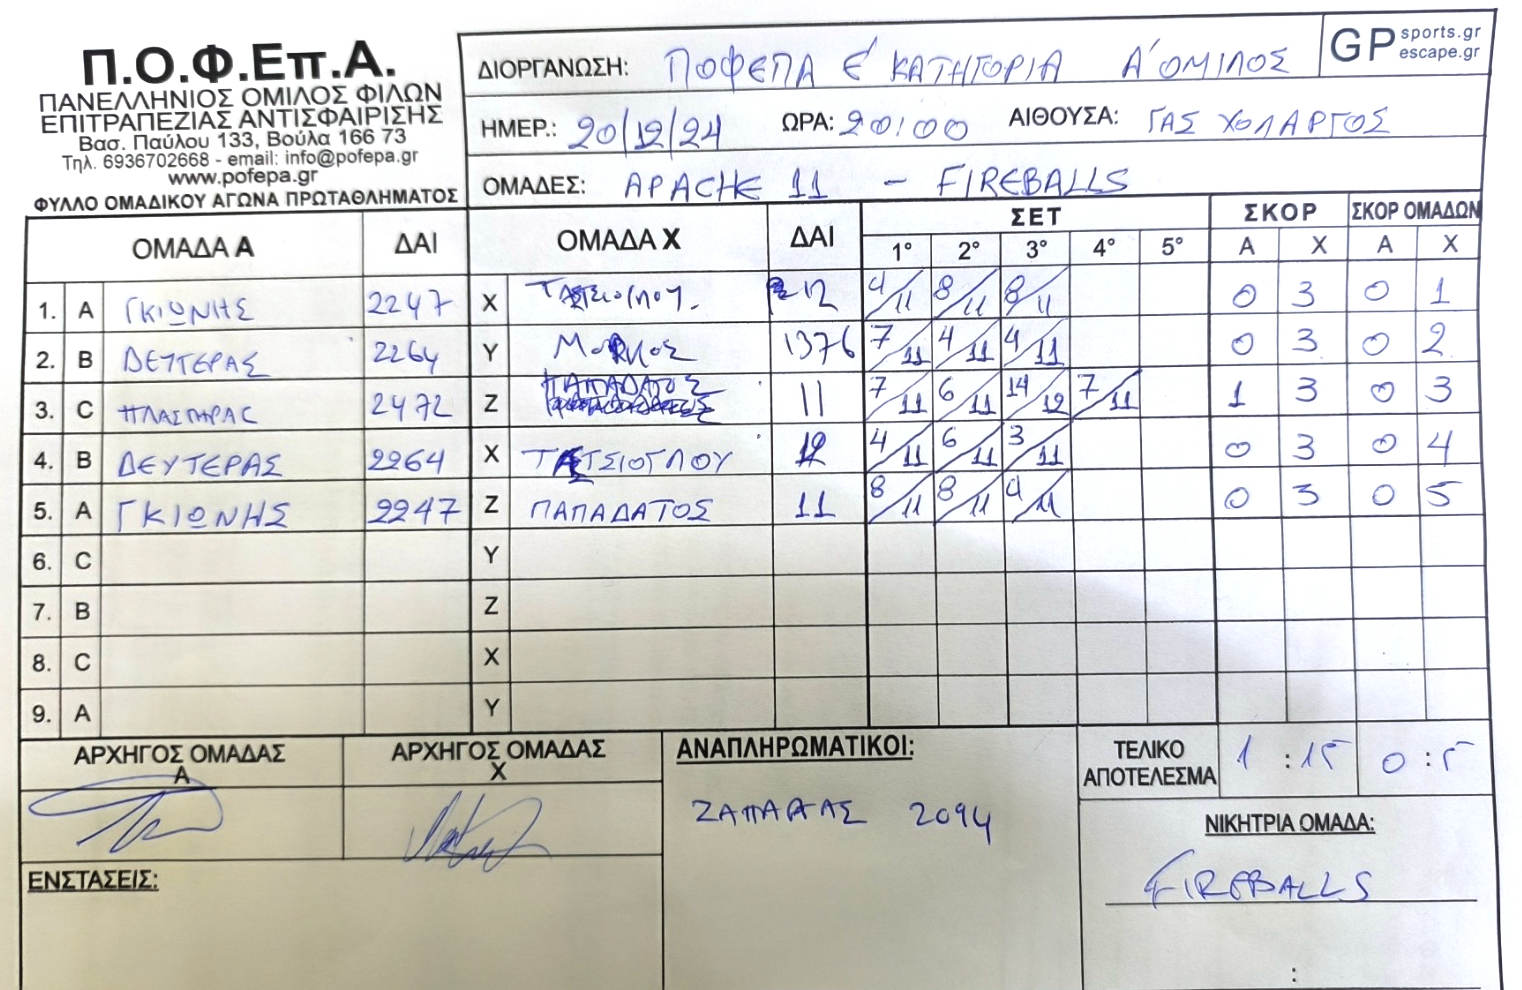 Π.Ο.Φ.Επ.Α.
ΠΑΝΕΛΛΗΝΙΟΣ ΟΜΙΛΟΣ ΦΙΛΩΝ
ΕΠΙΤΡΑΠΕΖΙΑΣ ΑΝΤΙΣΦΑΙΡΙΣΗΣ
Βασ. Παύλου 133, Βούλα 166 73
Τηλ. 6936702668 - email: info@pofepa.gr
www.pofepa.gr
ΦΥΛΛΟ ΟΜΑΔΙΚΟΥ ΑΓΩΝΑ ΠΡΩΤΑΘΛΗΜΑΤΟΣ
ΔΙΟΡΓΑΝΩΣΗ: ΠΟΦΕΠΑ Ε' ΚΑΤΗΓΟΡΙΑ Α' ΟΜΙΛΟΣ
GP sports.gr
escape.gr
ΗΜΕΡ.: 20/12/24 ΩΡΑ: 20:00 ΑΙΘΟΥΣΑ: ΓΑΣ ΧΟΛΑΡΓΟΣ
ΟΜΑΔΕΣ: APACHE 11 - FIREBALLS
ΟΜΑΔΑ Α ΔΑΙ ΟΜΑΔΑ Χ ΔΑΙ ΣΕΤ ΣΚΟΡ ΣΚΟΡ ΟΜΑΔΩΝ
1° 2° 3° 4° 5° Α Χ Α Χ
1. Α ΓΚΙΩΝΗΣ 2247 Χ 12 4/11 8/11 8/11 0 3 0 1
2. Β ΔΕΥΤΕΡΑΣ 2264 Υ 1376 7/11 4/11 4/11 0 3 0 2
3. C 2472 Ζ ΠΑΠΑΔΑΤΟΣ 11 7/11 6/11 14/12 7/11 1 3 0 3
4. Β ΔΕΥΤΕΡΑΣ 2264 Χ ΤΑΤΣΙΟΓΛΟΥ 12 4/11 6/11 3/11 0 3 0 4
5. Α ΓΚΙΩΝΗΣ 2247 Ζ ΠΑΠΑΔΑΤΟΣ 11 8/11 8/11 4/11 0 3 0 5
6. C Υ
7. Β Ζ
8. C Χ
9. Α Υ
ΑΡΧΗΓΟΣ ΟΜΑΔΑΣ Α
ΑΡΧΗΓΟΣ ΟΜΑΔΑΣ Χ
ΑΝΑΠΛΗΡΩΜΑΤΙΚΟΙ:
2094
ΤΕΛΙΚΟ ΑΠΟΤΕΛΕΣΜΑ 1 : 15 0 : 5
ΝΙΚΗΤΡΙΑ ΟΜΑΔΑ:
FIREBALLS
:
ΕΝΣΤΑΣΕΙΣ: